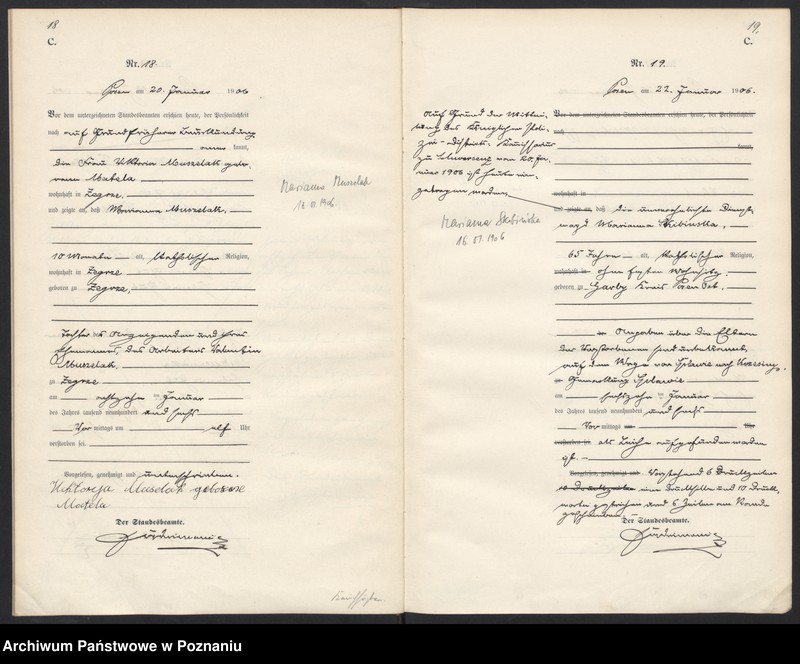 18
C.
Nr. 18.
Posen am 20. Januar 1906
Vor dem unterzeichneten Standesbeamten erschien heute, der Persönlichkeit
nach auf Grund früherer Beurkundung
kannt,
die Frau Viktoria Muszelak gebo-
rene Matela
wohnhaft in Zegrze,
und zeigte an, daß Marianna Muszelak,
10 Monate alt, katholischer Religion,
wohnhaft in Zegrze
geboren zu Zegrze,
Tochter des Anzeigenden und ihres
Ehemannes, des Arbeiters Valentin
Muszelak,
zu Zegrze
am achtzehnten Januar
des Jahres tausend neunhundert und sechs
Vor mittags um elf Uhr
verstorben sei.
Vorgelesen, genehmigt und unterschrieben.
Wiktoryja Muszelak geborene
Matela
Der Standesbeamte.
Marianna Muszelak
18.01.1906
19.
C.
Nr. 19.
Posen am 22. Januar 1906.
Auf Grund der Mittei-
lung des Königlichen Poli-
zei-Distrikts-Kommissars
zu Schwersenz vom 20. Ja-
nuar 1906 ist heute ein-
getragen worden
Marianna Skibińska
16.01.1906
Vor dem unterzeichneten Standesbeamten erschien heute, der Persönlichkeit
nach
kannt,
wohnhaft in
und zeigte an, daß die unverehelichte Dienst-
magd Marianna Skibinska,
65 Jahre alt, katholischer Religion,
wohnhaft in ohne festen Wohnsitz,
geboren zu Garby Kreis Posen Ost,
Angaben über die Eltern
der Verstorbenen sind unbekannt,
auf dem Wege von Spławie nach Krzesiny,
zu Gemarkung Spławie
am sechzehnten Januar
des Jahres tausend neunhundert und sechs
Vor mittags um Uhr
verstorben sei. als Leiche aufgefunden worden
ist.
Vorgelesen, genehmigt und Vorstehend 6 Druckzeilen
gestrichen und 6 Zeilen am Rande
geschrieben
Der Standesbeamte.
Archiwum Państwowe w Poznaniu